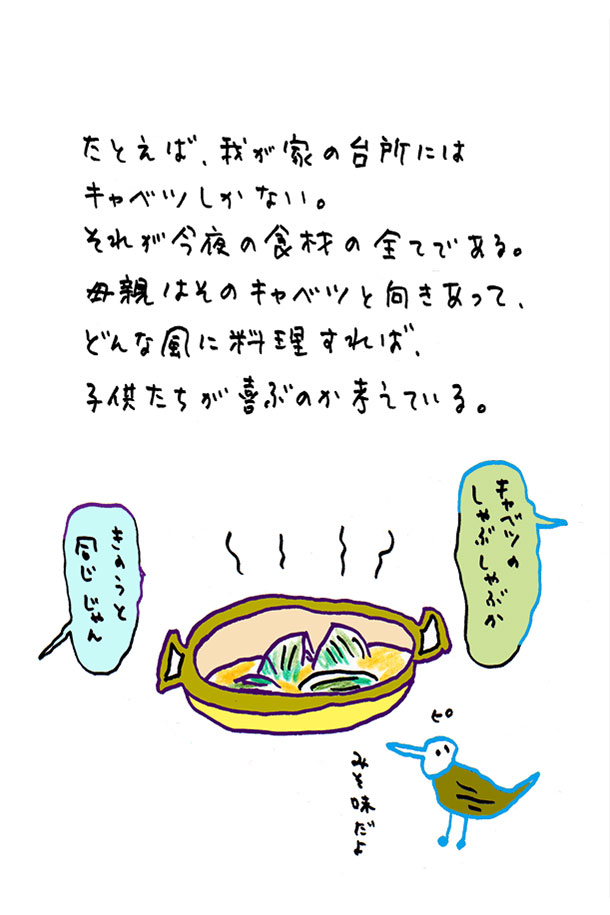 たとえば、我が家の台所には
キャベツしかない。
それが今夜の食材の全てである。
母親はそのキャベツと向きあって、
どんな風に料理すれば、
子供たちが喜ぶのか考えている。
キャベツの
しゃぶしゃぶか
きのうと
同じじゃん
ピ
みそ味だよ